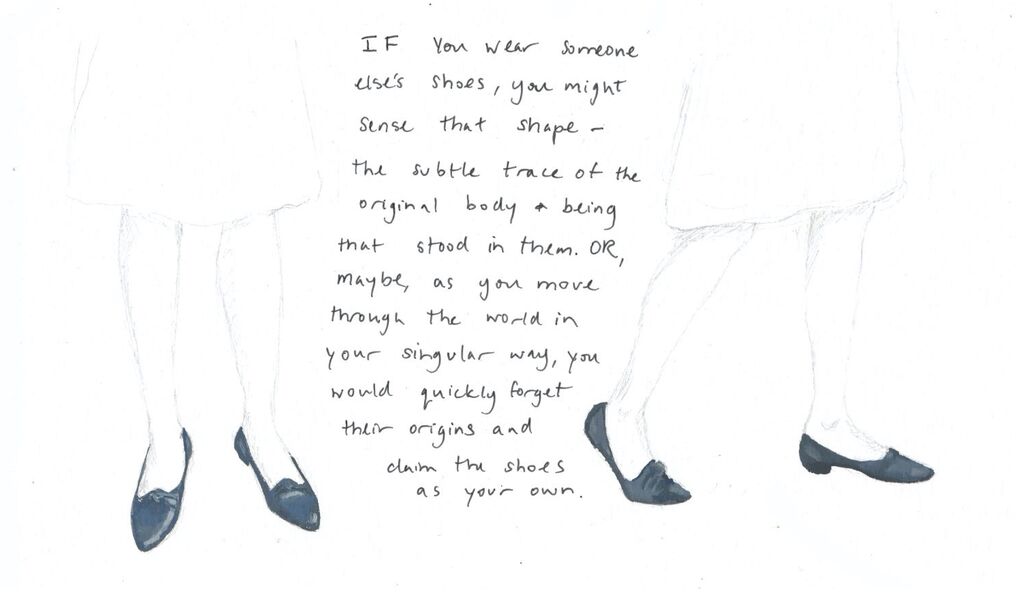 IF You wear someone
else's shoes, you might
sense that shape –
the subtle trace of the
original body + being
that stood in them. OR,
maybe, as you move
through the world in
your singular way, you
would quickly forget
their origins and
claim the shoes
as your own.